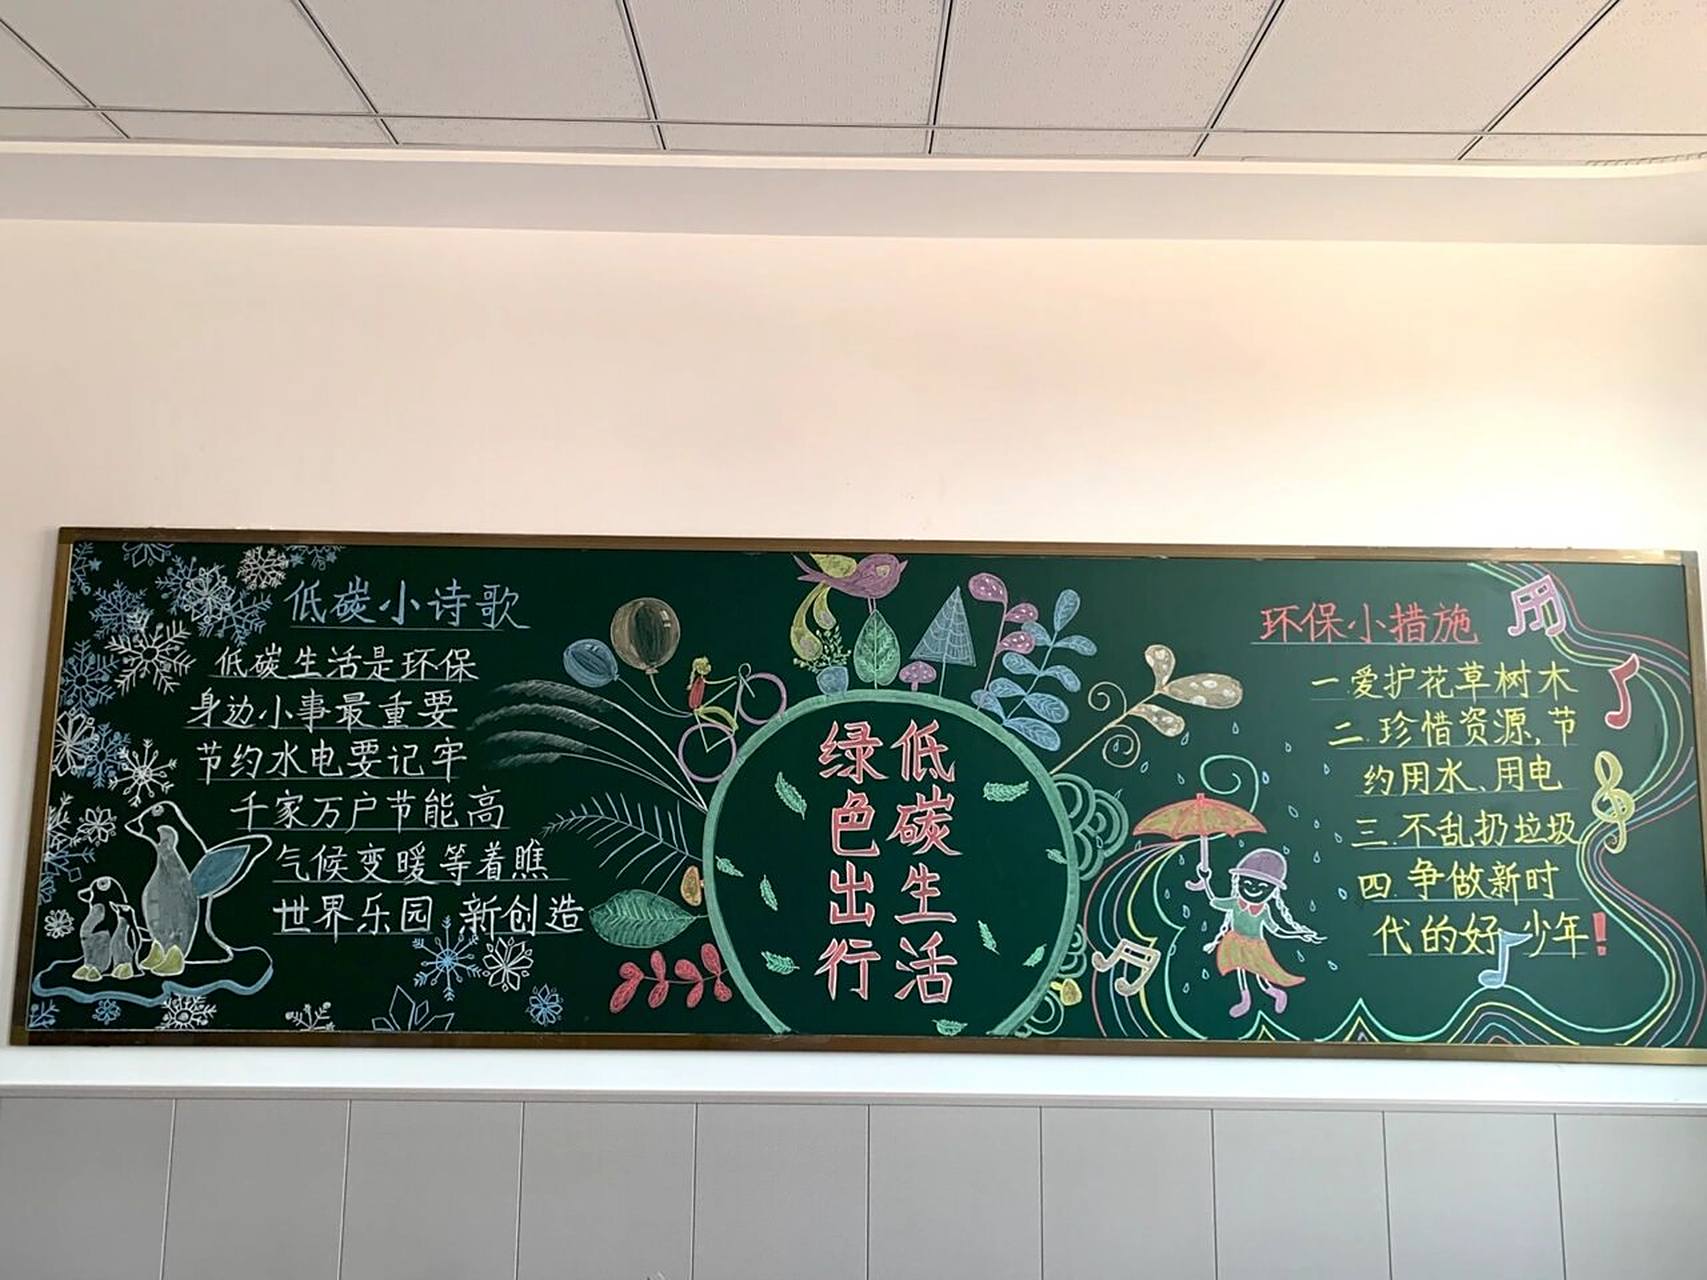 低碳小诗歌
低碳生活是环保
身边小事最重要
节约水电要记牢
千家万户节能高
气候变暖等着瞧
世界乐园 新创造
低碳生活
绿色出行
环保小措施
一.爱护花草树木
二.珍惜资源、节
约用水、用电
三.不乱扔垃圾
四.争做新时
代的好少年!